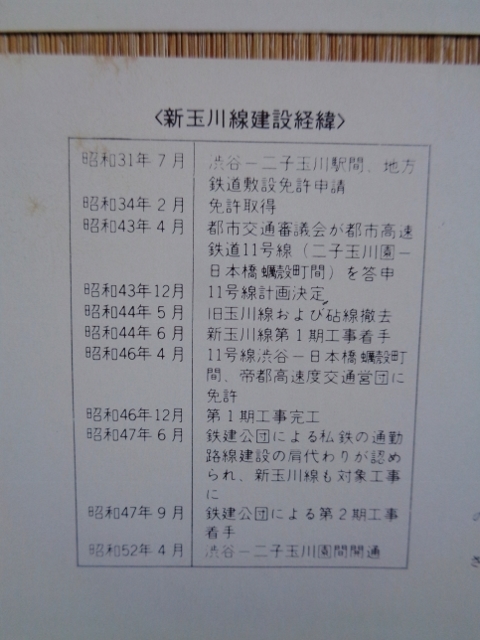 〈新玉川線建設経緯〉
昭和31年7月 渋谷－二子玉川駅間、地方
鉄道敷設免許申請
昭和34年2月 免許取得
昭和43年4月 都市交通審議会が都市高速
鉄道11号線（二子玉川園－
日本橋蠣殻町間）を答申
昭和43年12月 11号線計画決定
昭和44年5月 旧玉川線および砧線撤去
昭和44年6月 新玉川線第1期工事着手
昭和46年4月 11号線渋谷－日本橋蠣殻町
間、帝都高速度交通営団に
免許
昭和46年12月 第1期工事完工
昭和47年6月 鉄建公団による私鉄の通勤
路線建設の肩代わりが認め
られ、新玉川線も対象工事
に
昭和47年9月 鉄建公団による第2期工事
着手
昭和52年4月 渋谷－二子玉川園間開通
の